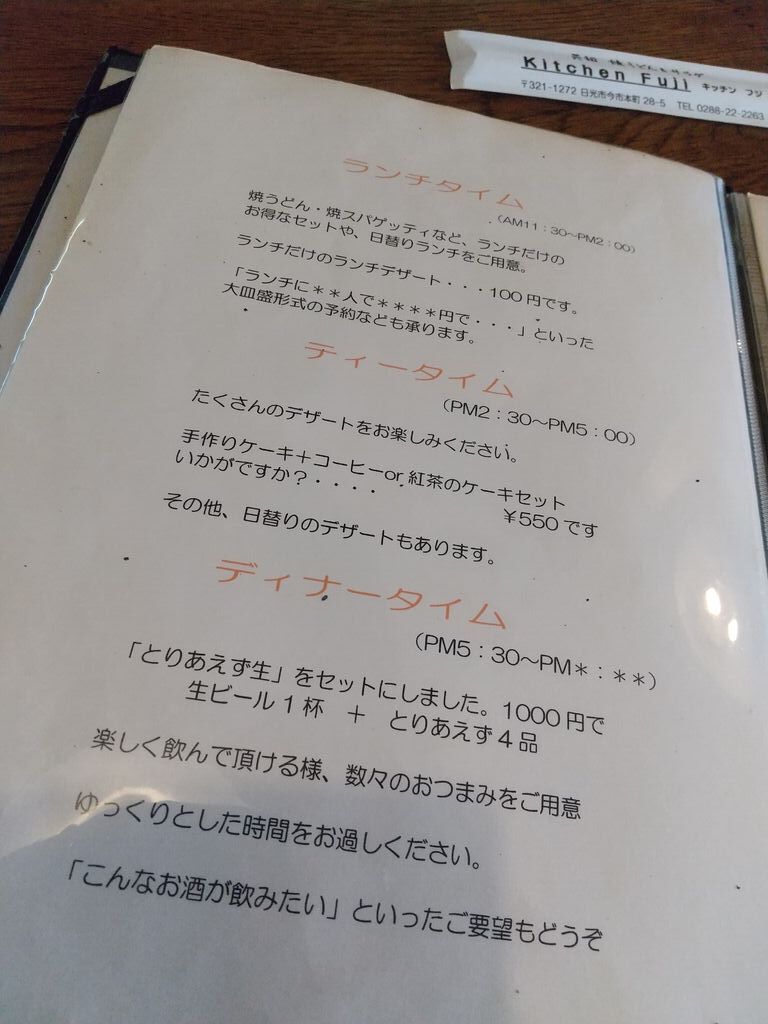 Kitchen Fuji キッチン フジ
〒321-1272 日光市今市本町28-5 TEL 0288-22-2263
ランチタイム
(AM11：30～PM2：00)
焼うどん・焼スパゲッティなど、ランチだけの
お得なセットや、日替りランチをご用意。
ランチだけのランチデザート・・・100円です。
「ランチに＊＊人で＊＊＊＊円で・・・」といった
大皿盛形式の予約なども承ります。
ティータイム
(PM2：30～PM5：00)
たくさんのデザートをお楽しみください。
手作りケーキ＋コーヒーor紅茶のケーキセット
いかがですか？・・・・ ￥550です
その他、日替りのデザートもあります。
ディナータイム
(PM5：30～PM＊：＊＊)
「とりあえず生」をセットにしました。1000円で
生ビール1杯 ＋ とりあえず4品
楽しく飲んで頂ける様、数々のおつまみをご用意
ゆっくりとした時間をお過しください。
「こんなお酒が飲みたい」といったご要望もどうぞ